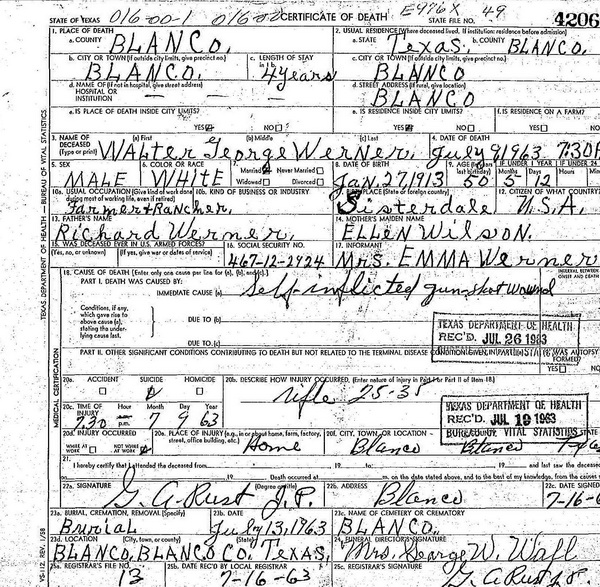 STATE OF TEXAS 016-00-1 CERTIFICATE OF DEATH E976X STATE FILE NO. 49 4206
1. PLACE OF DEATH 2. USUAL RESIDENCE (Where deceased lived. If institution: residence before admission)
a. COUNTY BLANCO. a. STATE Texas. b. COUNTY BLANCO,
b. CITY OR TOWN (If outside city limits, give precinct no.) c. LENGTH OF STAY in 1b c. CITY OR TOWN (If outside city limits, give precinct no.)
BLANCO. 4 years BLANCO
d. NAME OF (If not in hospital, give street address) HOSPITAL OR INSTITUTION — — d. STREET ADDRESS (If rural, give location)
BLANCO
e. IS PLACE OF DEATH INSIDE CITY LIMITS? e. IS RESIDENCE INSIDE CITY LIMITS? f. IS RESIDENCE ON A FARM?
YES NO YES NO YES
3. NAME OF DECEASED (Type or print) (a) First (b) Middle (c) Last 4. DATE OF DEATH
WALter George Werner, July 9, 1963 7:30P
5. SEX 6. COLOR OR RACE 7. Married Never Married Widowed Divorced 8. DATE OF BIRTH 9. AGE (In years last birthday) IF UNDER 1 YEAR IF UNDER 24
MALE WHITE JAN, 27, 1913 50 5 12
10a. USUAL OCCUPATION (Give kind of work done during most of working life, even if retired) 10b. KIND OF BUSINESS OR INDUSTRY 11. BIRTHPLACE (State or foreign country) 12. CITIZEN OF WHAT COUNTRY
Farmer + Rancher, Sisterdale U.S.A.
13. FATHER'S NAME 14. MOTHER'S MAIDEN NAME
Richard Werner, ELLEN Wilson.
15. WAS DECEASED EVER IN U.S. ARMED FORCES? 16. SOCIAL SECURITY NO. 17. INFORMANT
(Yes, no, or unknown) (If yes, give war or dates of service) 467-12-2924 Mrs. EMMA Werner
18. CAUSE OF DEATH [Enter only one cause per line for (a), (b), and (c).] INTERVAL BETWEEN ONSET AND DEATH
PART I. DEATH WAS CAUSED BY:
IMMEDIATE CAUSE (a) Self-inflicted gun-shot wound
Conditions, if any, which gave rise to above cause (a), stating the underlying cause last.
DUE TO (b)
DUE TO (c)
TEXAS DEPARTMENT OF HEALTH
REC'D. JUL 26 1963
PART II. OTHER SIGNIFICANT CONDITIONS CONTRIBUTING TO DEATH BUT NOT RELATED TO THE TERMINAL DISEASE CONDITION GIVEN IN PART I(a) 19. WAS AUTOPSY PERFORMED?
YES
20a. ACCIDENT SUICIDE HOMICIDE 20b. DESCRIBE HOW INJURY OCCURRED. (Enter nature of injury in Part I or Part II of Item 18.)
rifle 25-35
20c. TIME OF INJURY Hour Month Day Year
7:30 p.m. 7 9 63
TEXAS DEPARTMENT OF HEALTH
REC'D. JUL 19 1963
BUREAU OF VITAL STATISTICS
20d. INJURY OCCURRED WHILE AT WORK NOT WHILE AT WORK 20e. PLACE OF INJURY (e.g., in or about home, farm, factory, street, office building, etc.) 20f. CITY, TOWN, OR LOCATION COUNTY STATE
Home Blanco Blanco Texas
21. I hereby certify that I attended the deceased from 19 to 19 and last saw the deceased
Death occurred at m. on the date stated above, and to the best of my knowledge, from the causes
22a. SIGNATURE (Degree or title) 22b. ADDRESS 22c. DATE SIGNED
G. A. Rust J.P. Blanco 7-16-6
23a. BURIAL, CREMATION, REMOVAL (Specify) 23b. DATE 23c. NAME OF CEMETERY OR CREMATORY
Burial July 13, 1963 BLANCO.
23d. LOCATION (City, town, or county) (State) 24. FUNERAL DIRECTOR'S SIGNATURE
BLANCO, BLANCO Co. Texas, Mrs. George W. Wall
25a. REGISTRAR'S FILE NO. 25b. DATE REC'D BY LOCAL REGISTRAR 25c. REGISTRAR'S SIGNATURE
13 7-16-63 G. A. Rust
TEXAS DEPARTMENT OF HEALTH — BUREAU OF VITAL STATISTICS
MEDICAL CERTIFICATION
VS-112, REV. 1/58